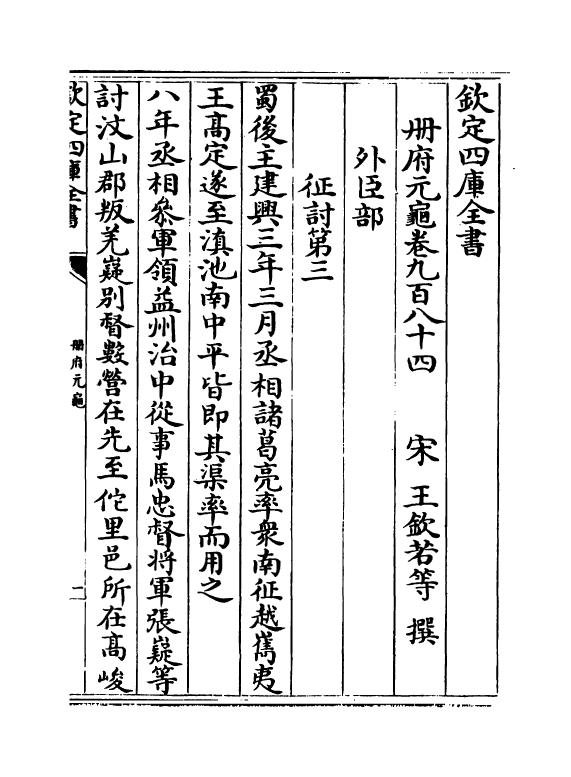 欽定四庫全書
册府元龜卷九百八十四 宋 王欽若等 撰
外臣部
征討第三
蜀後主建興三年三月丞相諸葛亮率衆南征越嶲夷
王髙定遂至滇池南中平皆即其渠率而用之
八年丞相叅軍領益州治中從事馬忠督将軍張嶷等
討汶山郡叛羌嶷别督數營在先至佗里邑所在髙峻
欽定四庫全書
册府元龜